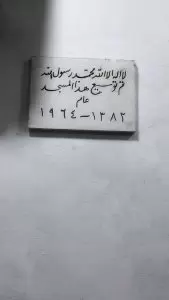 لا اله الا الله محمد رسول الله
تم توسيع هذا المسجد
عام
١٣٨٢ - ١٩٦٤